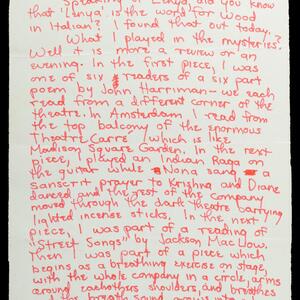 Speaking of Lenya, did you know
that 'Lenya' is the word for wood
in Italian? I found that out today.
What I played in the mysteries?
Well it is more a review or an
evening. In the first piece, I was
one of six readers of a six part
poem by John Harriman - we each
read from a different corner of the
theatre. In Amsterdam I read from
the top balcony of the enormous
Theatre Carre which is like
Madison Square Garden. In the next
piece, I played an Indian Raga on
the guitar while Nona sang a
sanscrit prayer to Krishna and Diane
danced and the rest of the company
moved through the dark theatre carrying
lighted incense sticks. In the next
piece, I was part of a reading of
"Street Songs" by Jackson MacLow.
Then I was part of a piece which
begins as a breathing exercise on stage,
with the whole company in a circle, arms
around eachothers shoulders, and breathes
breath sound